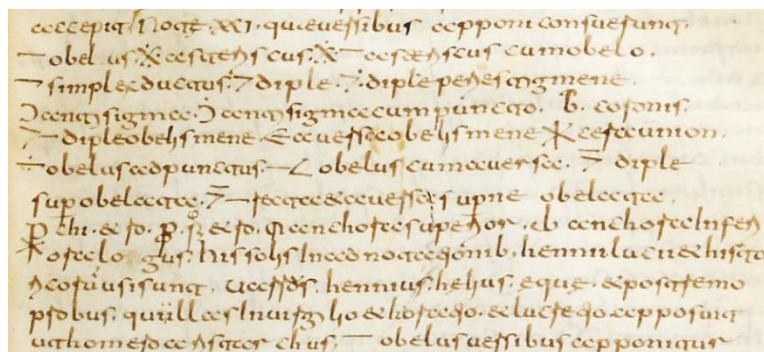 accepit. Notae. XXI. quae versibus apponi consuerunt.
— obelus. ※ asteriscus. ※— asteriscus cum obelo.
— simplex ductus. > diple. >: diple periestigmene.
Ɔ antisigma. Ɔ· antisigma cum puncto. coronis.
>— diple obelismene. aversa obelismene. ceraunion.
÷ obelus adpunctus. —< obelus cum aversa. diple
sup obelata. recta et aversa superne obelatae.
chi. et ro. et ro. anchora superior. anchora inferi
alogus. his solis in adnotationib. hennii lucii et histo
ricorum usi sunt. varros. hennius. helius. eque. et postremo
probus. qui illas in virgilio et horatio. et lucretio apposuit
ut homero aristarchus. — obelus versibus apponitur